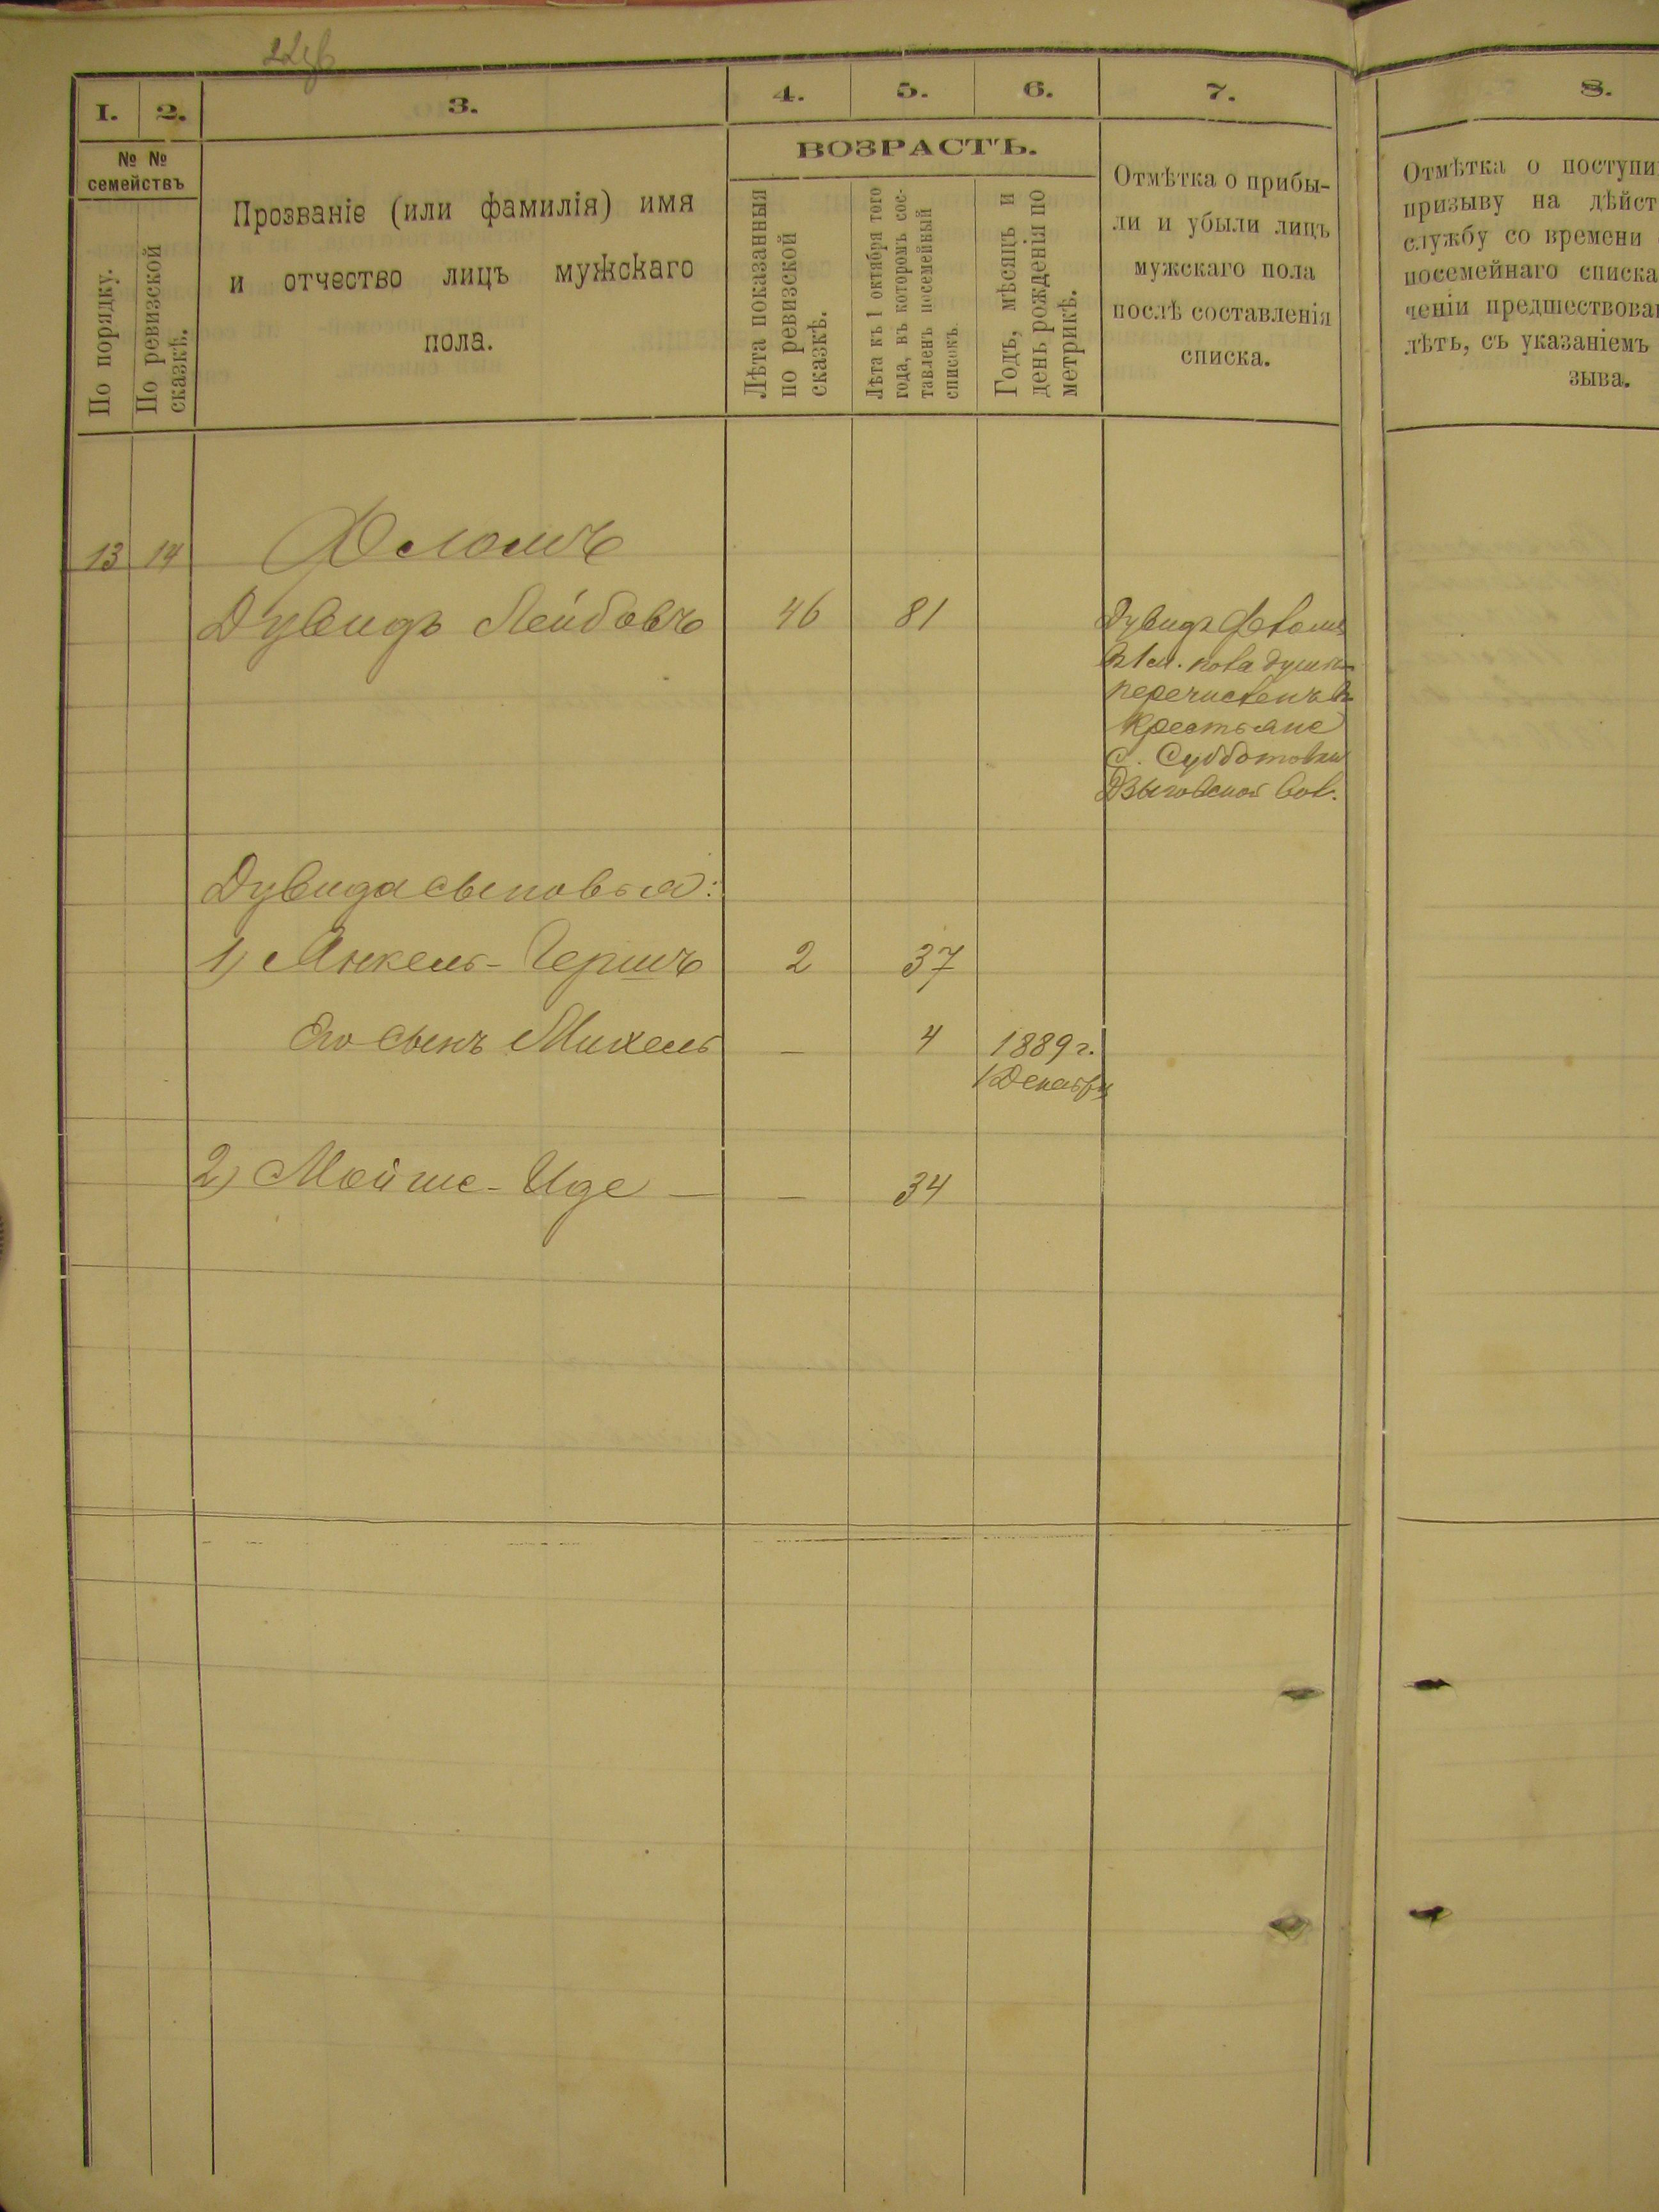 1. 2. 3. 4. 5. 6. 7. 8.
№ № семействъ
По порядку.
По ревизской сказкѣ.
Прозваніе (или фамилія) имя
и отчество лицъ мужскаго
пола.
ВОЗРАСТЪ.
Лѣта показанныя
по ревизской
сказкѣ.
Лѣта къ 1 октября того
года, въ которомъ сос-
тавленъ посемейный
списокъ.
Годъ, мѣсяцъ и
день рожденія по
метрикѣ.
Отмѣтка о прибы-
ли и убыли лицъ
мужскаго пола
послѣ составленія
списка.
Отмѣтка о поступи
призыву на дѣйст
службу со времени
посемейнаго списка
ченіи предшествова
лѣтъ, съ указаніемъ
зыва.
13 14
Дувидъ Лейбовъ 46 81
Дувидъ
въ 1 м. пола душѣ
перечисленъ въ
крестьяне
с. Субботовки
Дзыговской вол.
Дувида сыновья:
1) Янкель-Гершъ 2 37
Его сынъ Михель — 4 1889 г.
1 Декабря
2) Мойше-Иде — — 34